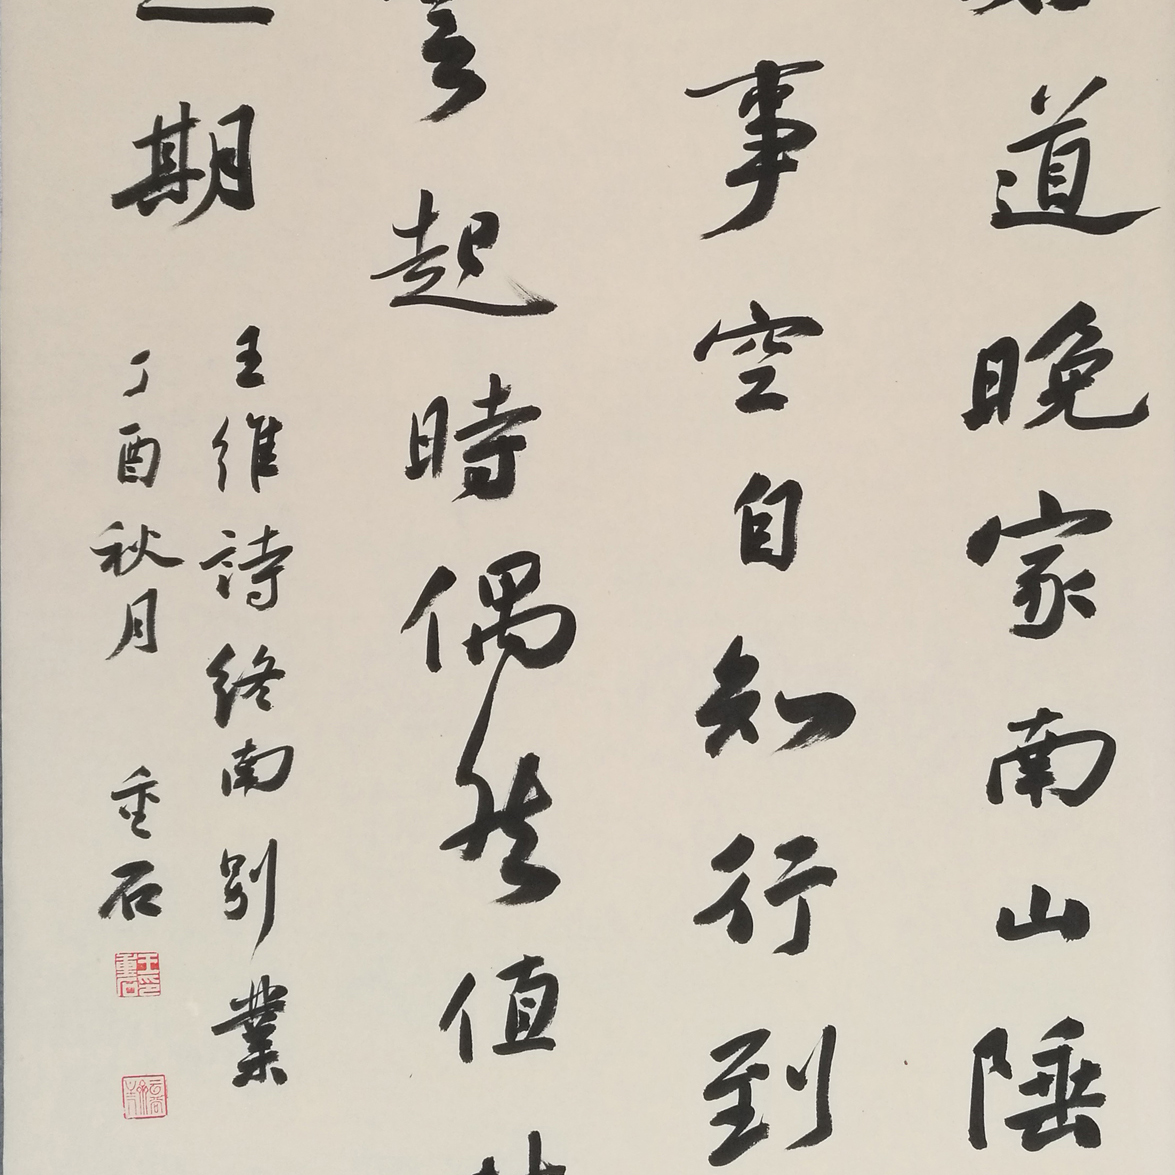 道晚家南山陲
事空自知行到
起時偶然值
期
王維詩終南別業
丁酉秋月 重石